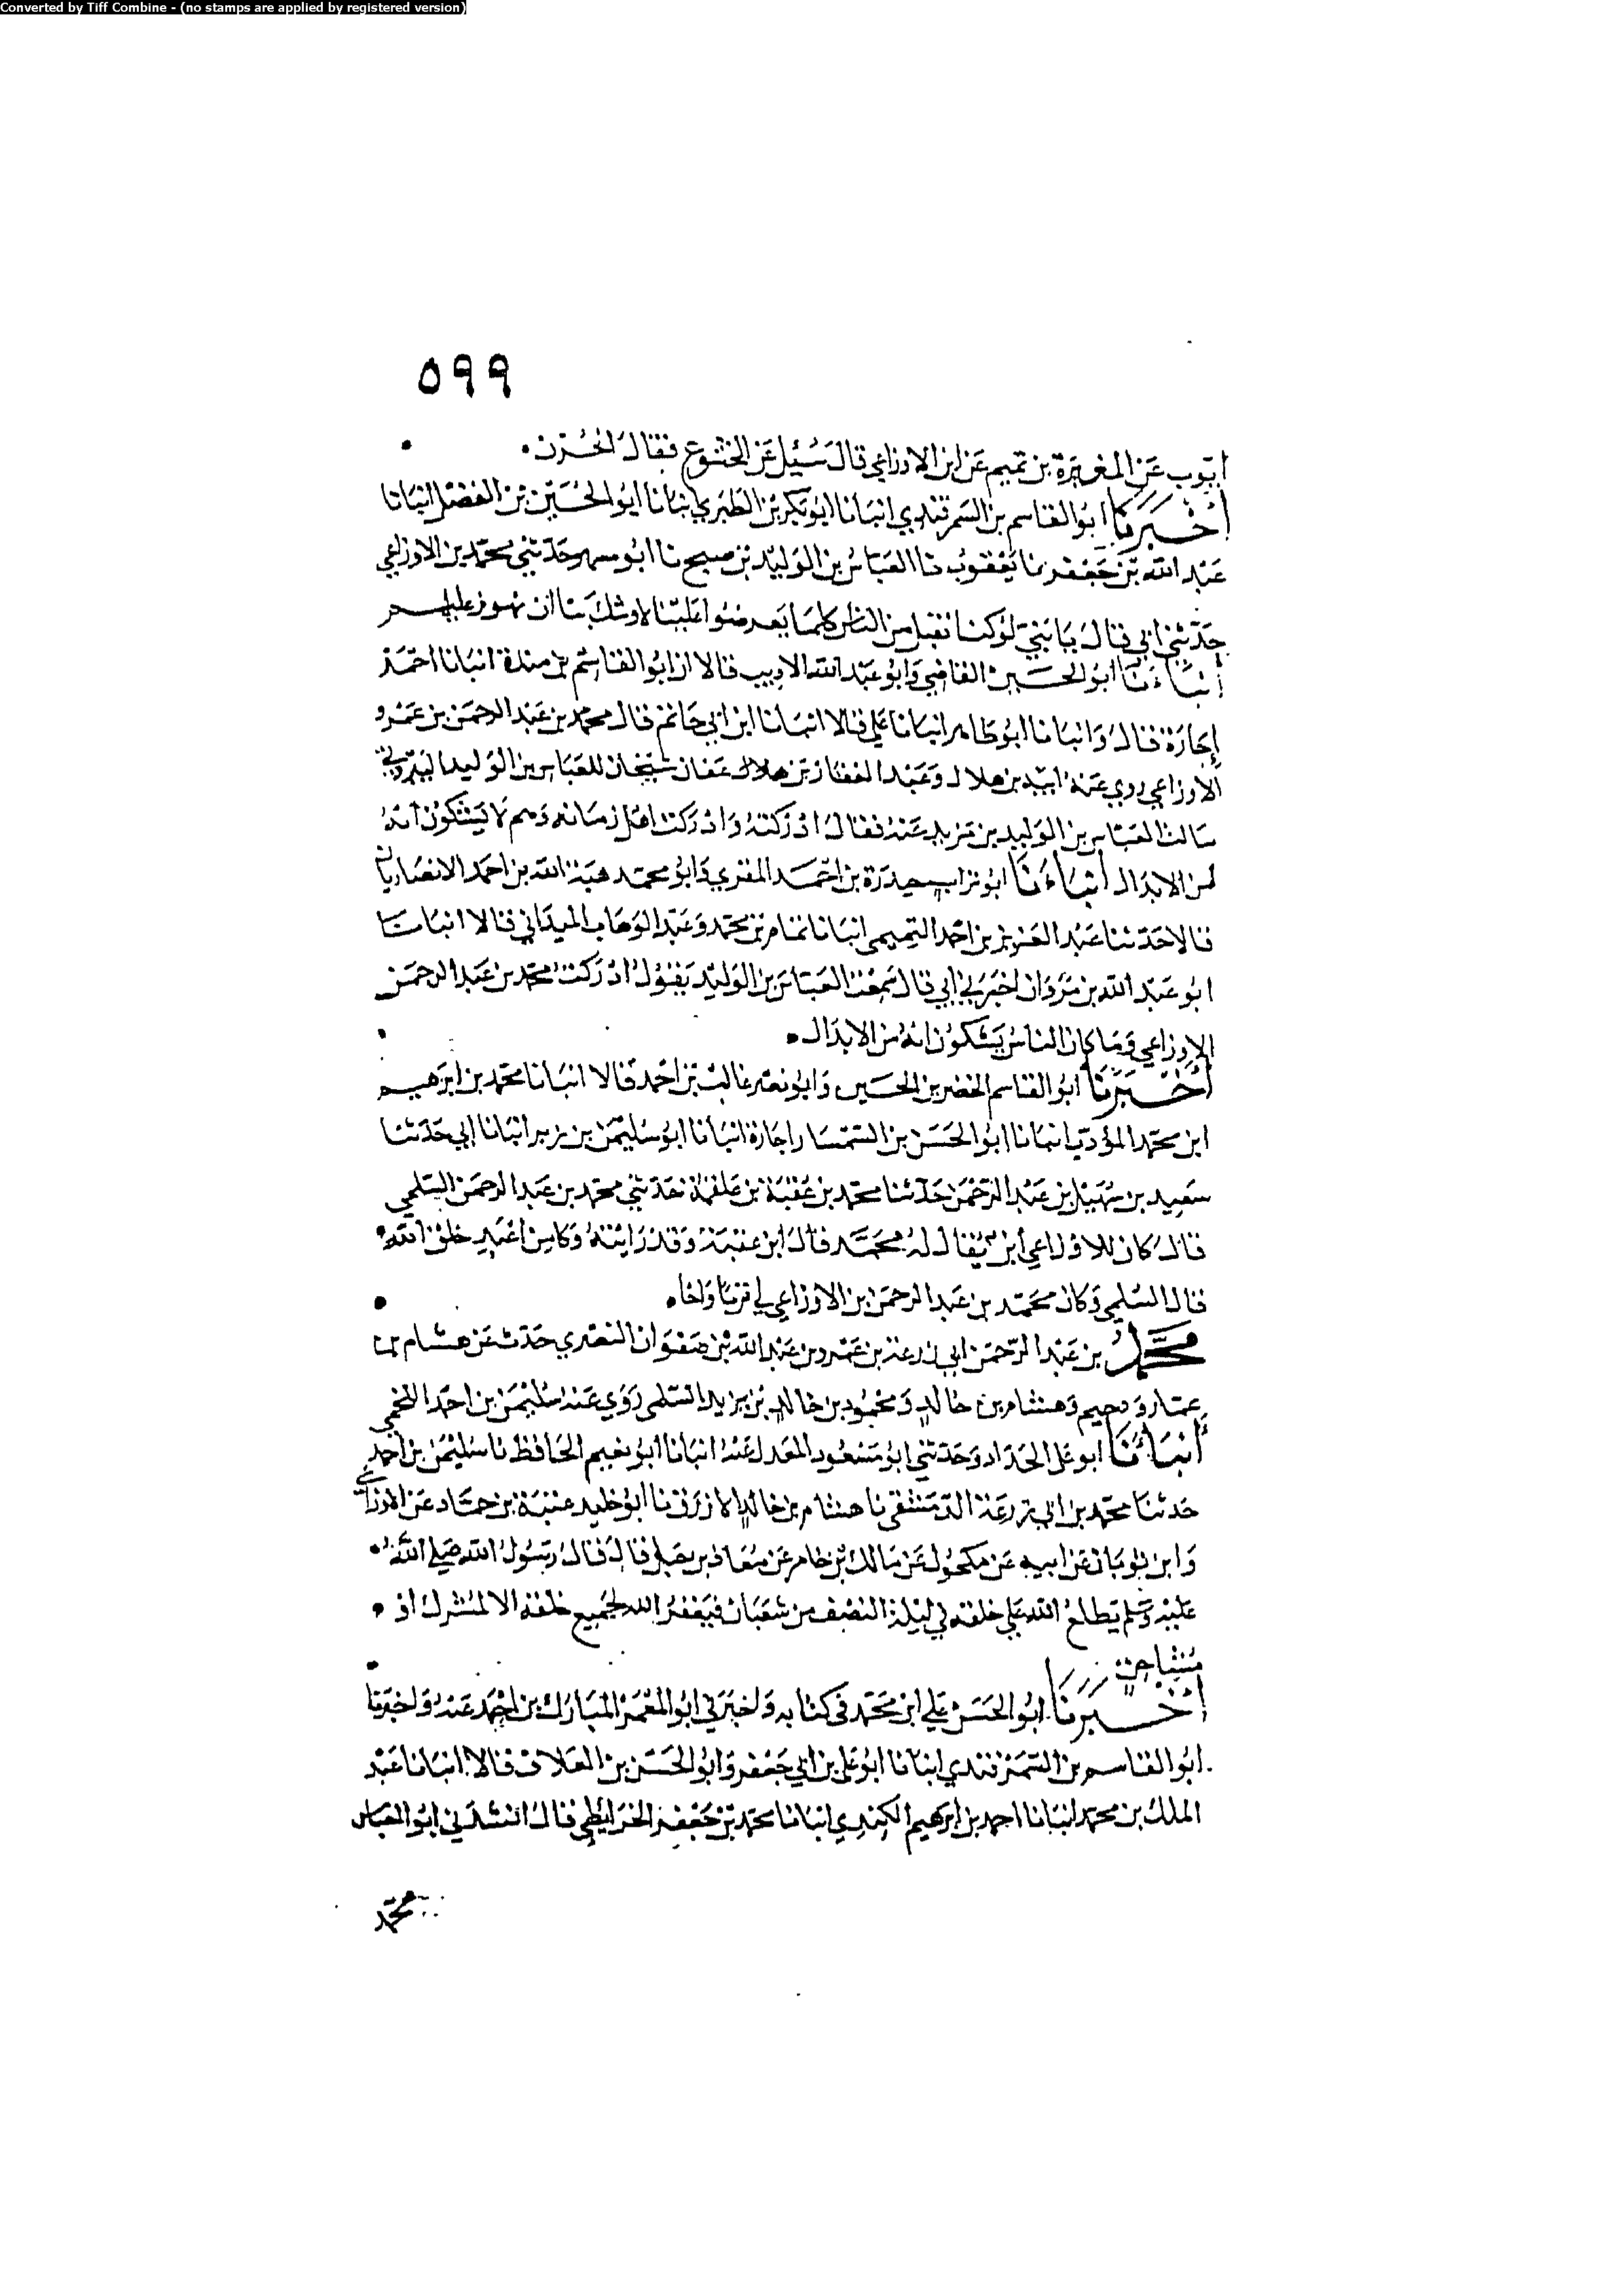 Converted by Tiff Combine - (no stamps are applied by registered version)
٥٩٩
ايوب عن المغيرة بن تميم عن ابن الاوزاعي قال سُئِل عن الخشوع فقال الحُزن
أخبرنا ابو القاسم بن السمرقندي انبانا ابو بكر بن الطبري انبانا ابو الحُسَين بن الفضل انبانا
عبد الله بن جعفر نا يعقوب نا العباس بن الوليد بن صبح نا ابو مسهر حدثني محمد بن الاوزاعي
حدثني ابي قال يا بني لو كنا نقبل من الناس كلما يعرضوا علينا لاوشك بنا ان نهون عليهم
أنباءَنا ابو الحسين القاضي وابو عبد الله الاديب قالا انا ابو القاسم بن مندة انبانا احمد
إجازة قال وانبانا ابو طاهر انبانا علي قالا انبانا ابن ابي حاتم قال محمد بن عبد الرحمن بن عمرو
الاوزاعي روي عنه ابيد بن هلال وعبد الغفار بن عفان شيخان للعباس بن الوليد البيروتي
سالت العباس بن الوليد بن مزيد عنه فقال ادركته وادركت اهل زمانه وهم لا يشكون انه
لمن الابدال أنباءَنا ابو تراب حيدرة بن احمد المقري وابو محمد هبة الله بن احمد الانصاريان
قالا حدثنا عبد العزيز بن احمد التميمي انبانا تمام بن محمد وعبد الوهاب الميداني قالا انبانا
ابو عبد الله بن مروان اخبرني ابي قال سمعت العباس بن الوليد يقول ادركت محمد بن عبد الرحمن
الاوزاعي وما كان الناس يشكون انه من الابدال
أخبرنا ابو القاسم الخضر بن الحسين وابو نصر غالب بن احمد قالا انبانا محمد بن ابرهيم
ابن محمد المؤدب انبانا ابو الحسن بن السمسار اجازة انبانا ابو سليمن بن زبر انبانا ابي حدثنا
سعيد بن سهيل بن عبد الرحمن حدثنا محمد بن عقبة بن علقمة حدثني محمد بن عبد الرحمن السلمي
قال كان للاوزاعي ابن يقال له محمد قال ابن عقبة وقد رايته وكان من اعبد خلق الله
قال السلمي وكان محمد بن عبد الرحمن بن الاوزاعي لي قريبا واخا
محمد بن عبد الرحمن ابي زرعة بن عمرو بن عبد الله بن صفوان النصري حدث عن هشام بن
عمار ودحيم وهشام بن خالد ومحمود بن خالد بن يزيد السلمي روي عنه سليمن بن احمد اللخمي
أنباءَنا ابو علي الحداد وحدثني ابو مسعود المعدل عنه انبانا ابو نعيم الحافظ نا سليمن بن احمد
حدثنا محمد بن ابي زرعة الدمشقي نا هشام بن خالد الازرق نا ابو خليد عتبة بن حماد عن الاوزاعي
وابن ثوبان عن ابيه عن مكحول عن مالك بن يخامر عن معاذ بن جبل قال قال رسول الله صلي الله
عليه وسلم يطلع الله علي خلقه في ليلة النصف من شعبان فيغفر الله لجميع خلقه الا لمشرك او
مشاحن
أخبرنا ابو الحسن علي ابن محمد في كتابه واخبرني ابو المعمر المبارك بن احمد عنه واخبرنا
ابو القاسم بن السمرقندي انبانا ابو علي بن ابي جعفر وابو الحسن بن العلاف قالا انبانا عبد
الملك بن محمد انبانا احمد بن ابرهيم الكندي انبانا محمد بن جعفر الخرايطي قال انشدني ابو العباس
محمد